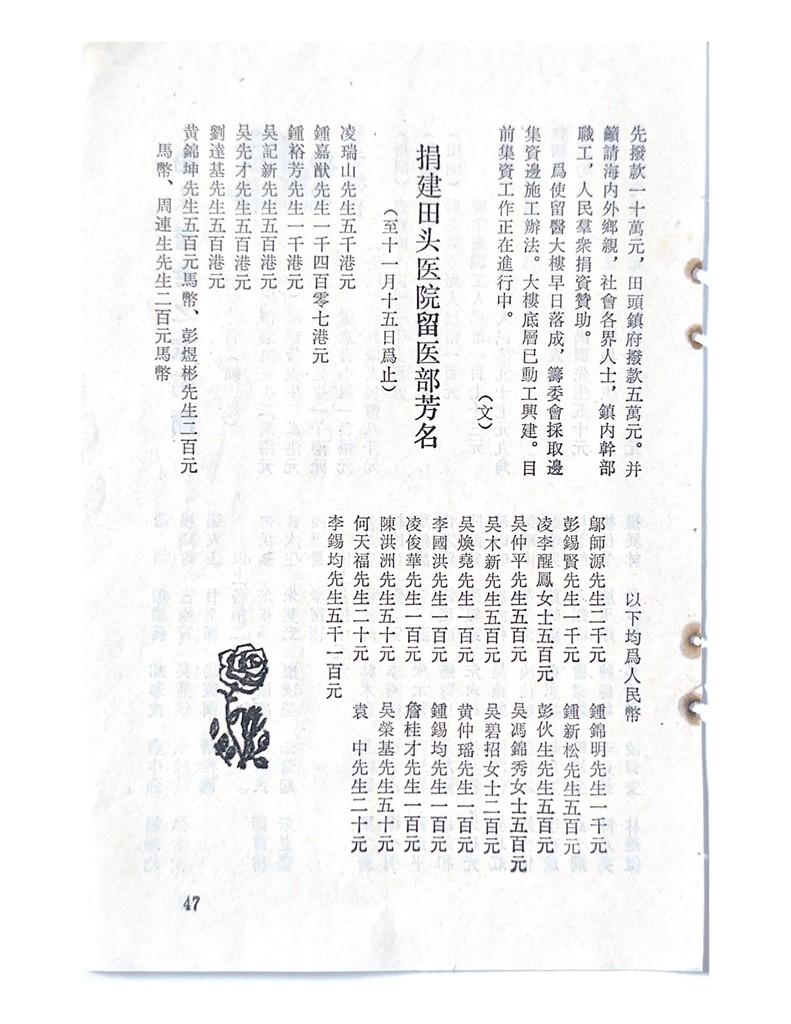 先撥款一十萬元，田頭鎮府撥款五萬元。并
籲請海內外鄉親，社會各界人士，鎮內幹部
職工，人民羣衆捐資贊助。
爲使留醫大樓早日落成，籌委會採取邊
集資邊施工辦法。大樓底層已動工興建。目
前集資工作正在進行中。
（文）
捐建田头医院留医部芳名
（至十一月十五日爲止）
凌瑞山先生五千港元
鍾嘉猷先生一千四百零七港元
鍾裕芳先生一千港元
吳記新先生五百港元
吳先才先生五百港元
劉達基先生五百港元
黄錦坤先生五百元馬幣、彭煜彬先生二百元
馬幣、周連生先生二百元馬幣
以下均爲人民幣
鄔師源先生二千元 鍾錦明先生一千元
彭錫賢先生一千元 鍾新松先生五百元
凌李醒鳳女士五百元 彭伙生先生五百元
吳仲平先生五百元 吳馮錦秀女士五百元
吳木新先生五百元 吳碧招女士二百元
吳煥堯先生一百元 黄仲瑶先生一百元
李國洪先生一百元 鍾錫均先生一百元
凌俊華先生一百元 詹桂才先生一百元
陳洪洲先生五十元 吳榮基先生五十元
何天福先生二十元 袁 中先生二十元
李錫均先生五千一百元
47